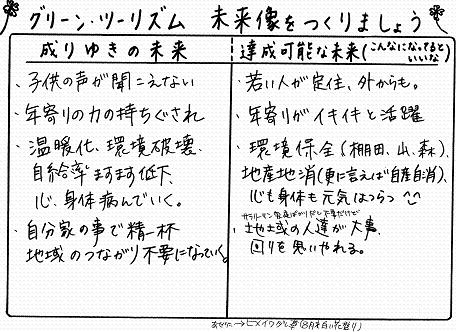 グリーン・ツーリズム 未来像をつくりましょう
成りゆきの未来
達成可能な未来(こんなになってるといいな)
・子供の声が聞こえない
・年寄りの力の持ちぐされ
・温暖化、環境破壊、
自給率ますます低下、
心、身体病んでいく。
・自分家の事で精一杯
地域のつながり不要になっていく。
・若い人が定住、外からも。
・年寄りがイキイキと活躍
・環境保全(棚田、山、森)、
地産地消(更に言えば自産自消)、
心も身体も元気はつらつ ^^
・地域の人達が大事、
回りを思いやれる。